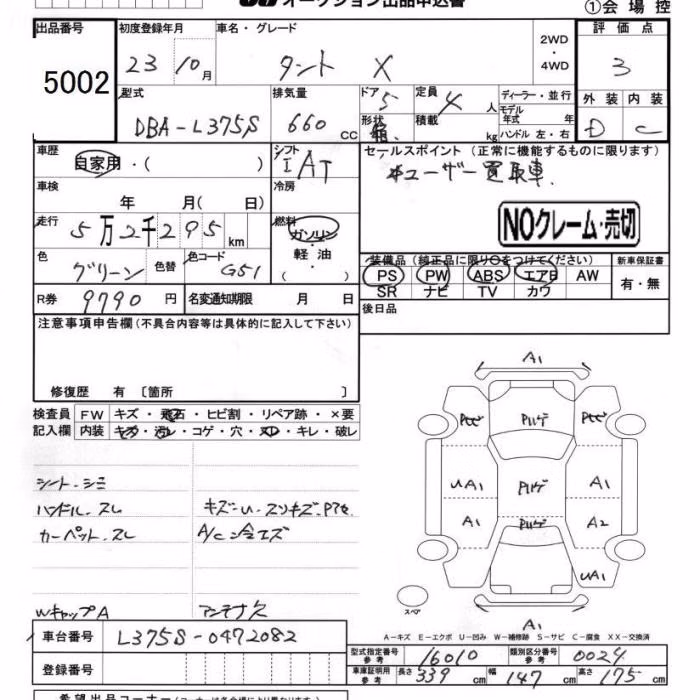 オークション出品申込書
①会場控
出品番号 5002
初度登録年月 23 10月
車名・グレード タント X
2WD・4WD
評価点 3
外装 D 内装 C
型式 DBA-L375S
排気量 660 CC
ドア 5
形状 箱
定員 4 人
積載 kg
ディーラー・並行
モデル年式 年
ハンドル 左・右
車歴 自家用・( )
シフト IAT
セールスポイント (正常に機能するものに限ります)
*ユーザー買取車.
車検 年 月( 日)
冷房
NOクレーム・売切
走行 5万2千295 km
燃料 ガソリン・軽油・( )
色 グリーン 色替
色コード G51
装備品(純正品に限り○をつけてください)
PS PW ABS エアB AW
SR ナビ TV カワ
新車保証書 有・無
R券 9790 円
名変通知期限 月 日
後日品
注意事項申告欄(不具合内容等は具体的に記入して下さい)
修復歴 有 〔箇所 〕
検査員記入欄
FW キズ・飛石・ヒビ割・リペア跡・×要
内装 キズ・汚レ・コゲ・穴・スレ・キレ・破レ
シート・シミ
ハンドル.スレ
キズ・U.スリキズ.Pアセ
カーペット.スレ
A/C冷エズ
WキャップA
アンテナ欠
A1
Pセゲ Pハゲ Pセゲ
UA1 Pハゲ A1
A1 A2
UA1
スペア
A1
A-キズ E-エクボ U-凹み W-補修跡 S-サビ C-腐食 XX-交換済
車台番号 L375S-0472082
型式指定番号参考 16010
類別区分番号参考 0024
登録番号
車庫証明用参考 長さ 339 cm 幅 147 cm 高さ 175 cm
希望出品コーナー